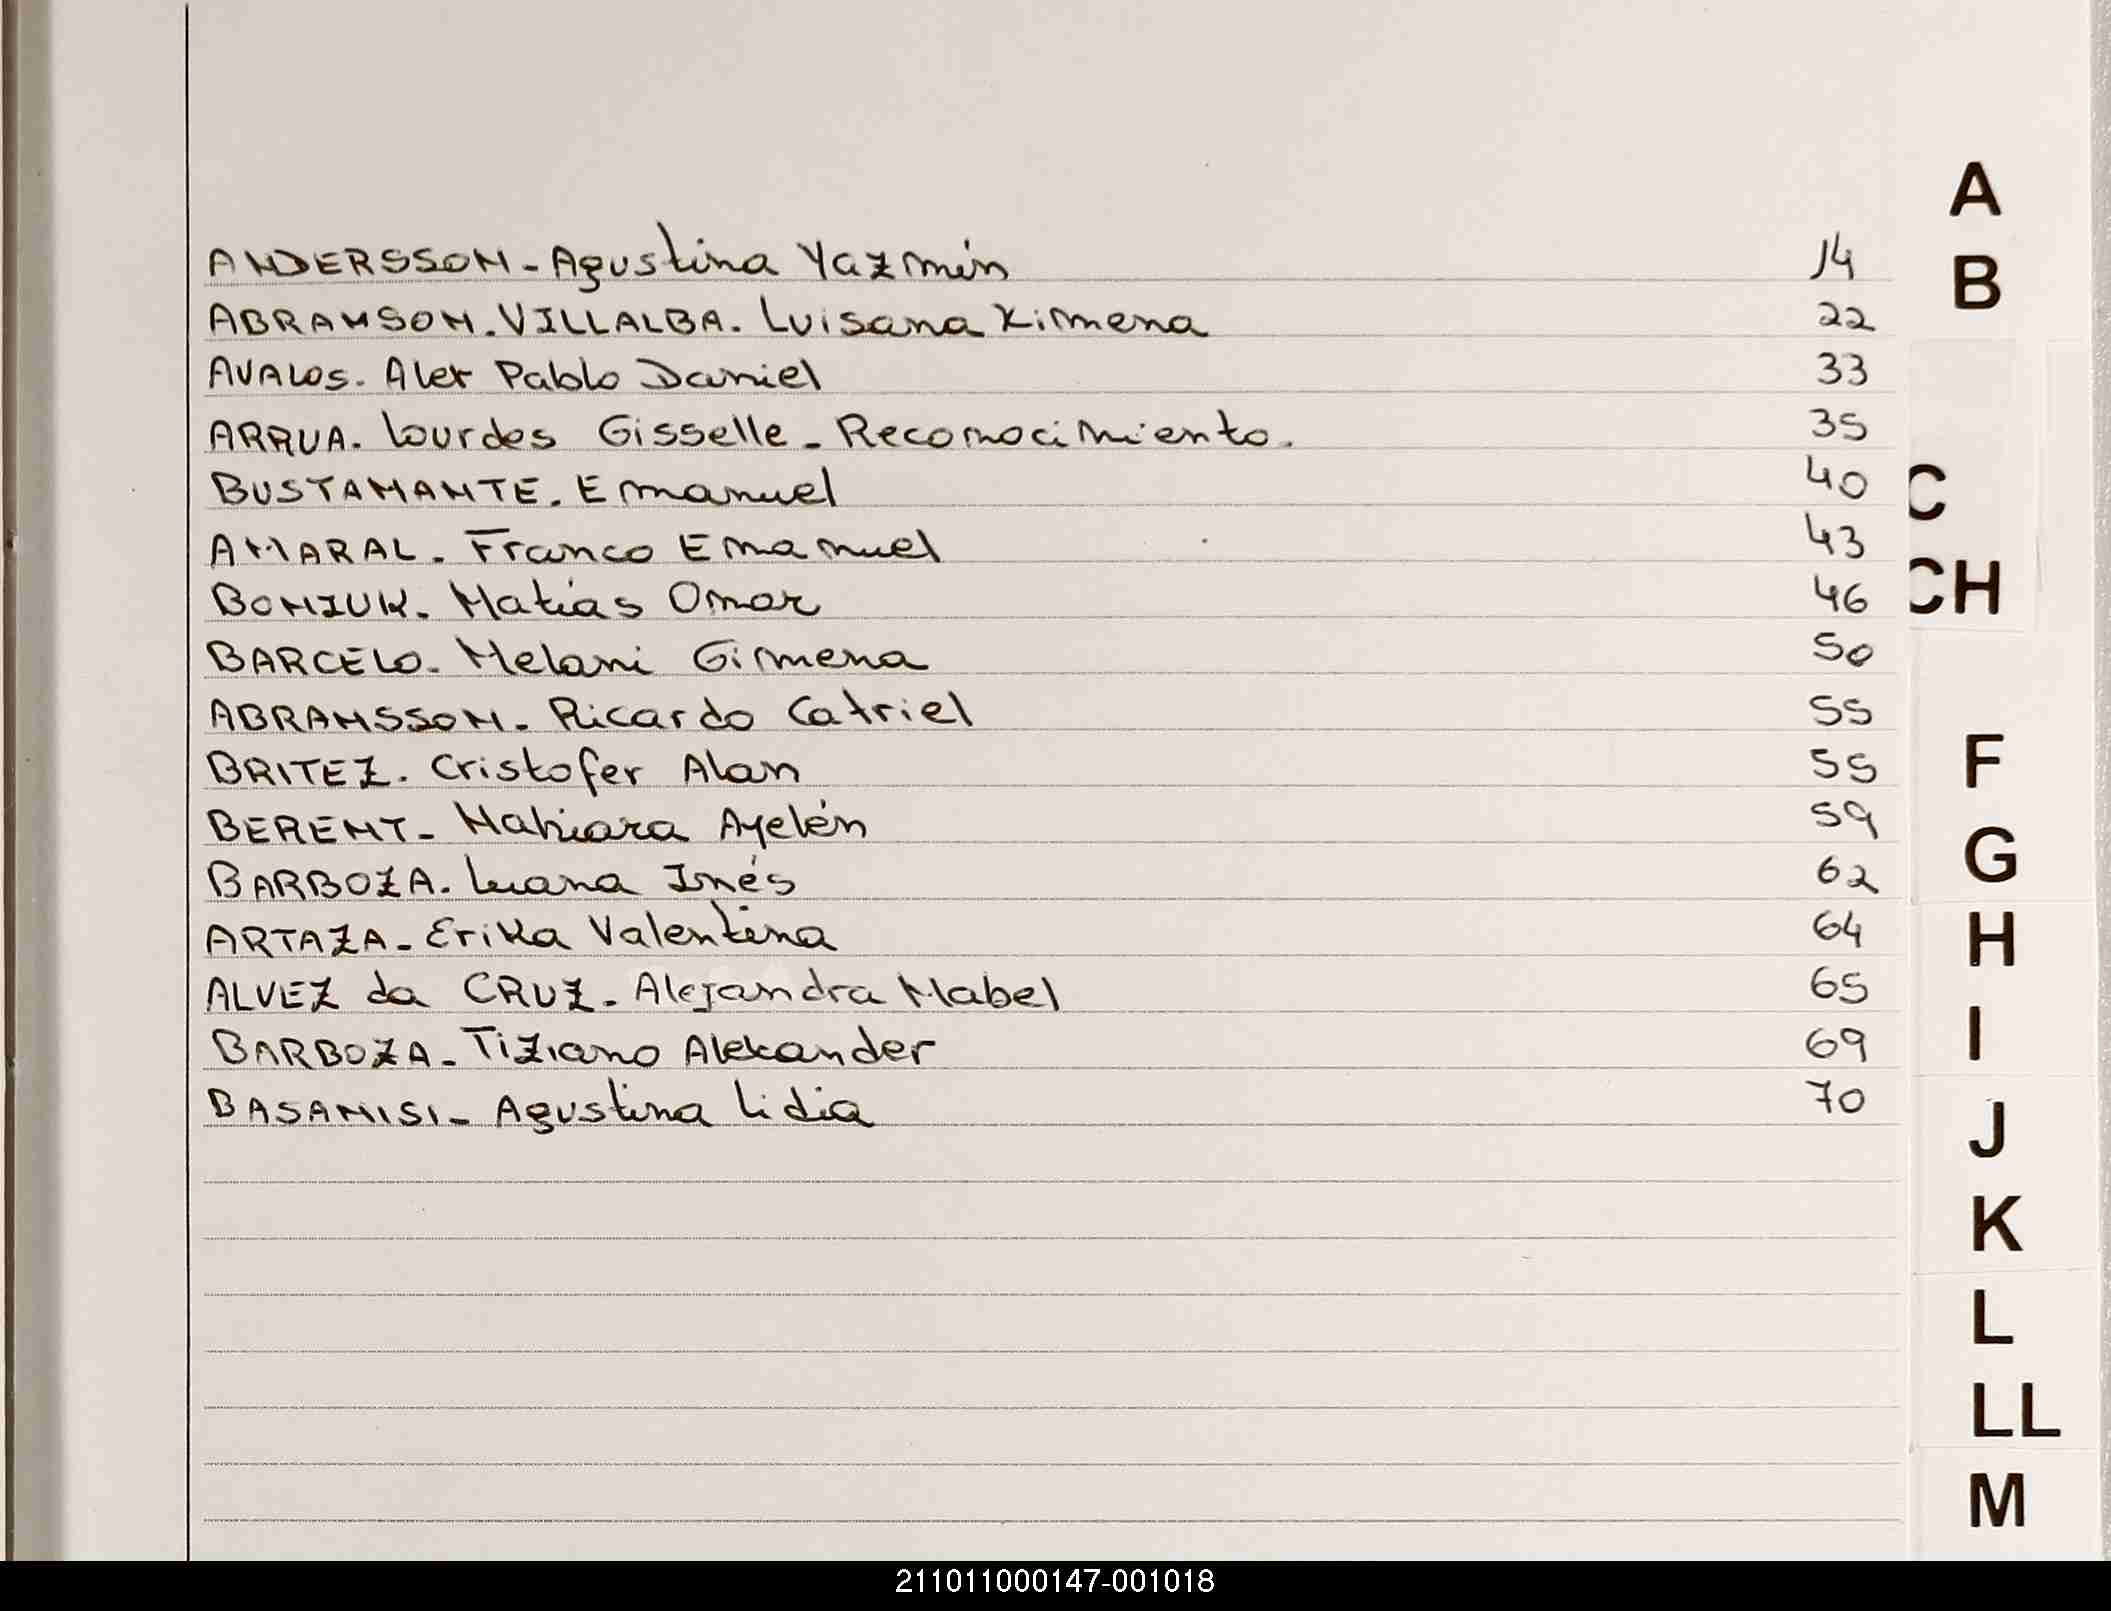 ANDERSSON - Agustina Yazmín 14
ABRAMSON. VILLALBA. Luisana Ximena 22
AVALOS. Alex Pablo Daniel 33
ARRUA. Lourdes Gisselle - Reconocimiento. 35
BUSTAMANTE. Emanuel 40
AMARAL. Franco Emanuel 43
BONIUK. Matías Omar 46
BARCELO. Melani Gimena 50
ABRAMSSON. Ricardo Catriel 55
BRITEZ. Cristofer Alan 55
BERENT - Nahiara Ayelén 59
BARBOZA. Luana Inés 62
ARTAZA - Erika Valentina 64
ALVEZ da CRUZ. Alejandra Mabel 65
BARBOZA - Tiziano Alexander 69
BASANISI - Agustina Lidia 70
A
B
C
CH
F
G
H
I
J
K
L
LL
M
211011000147-001018